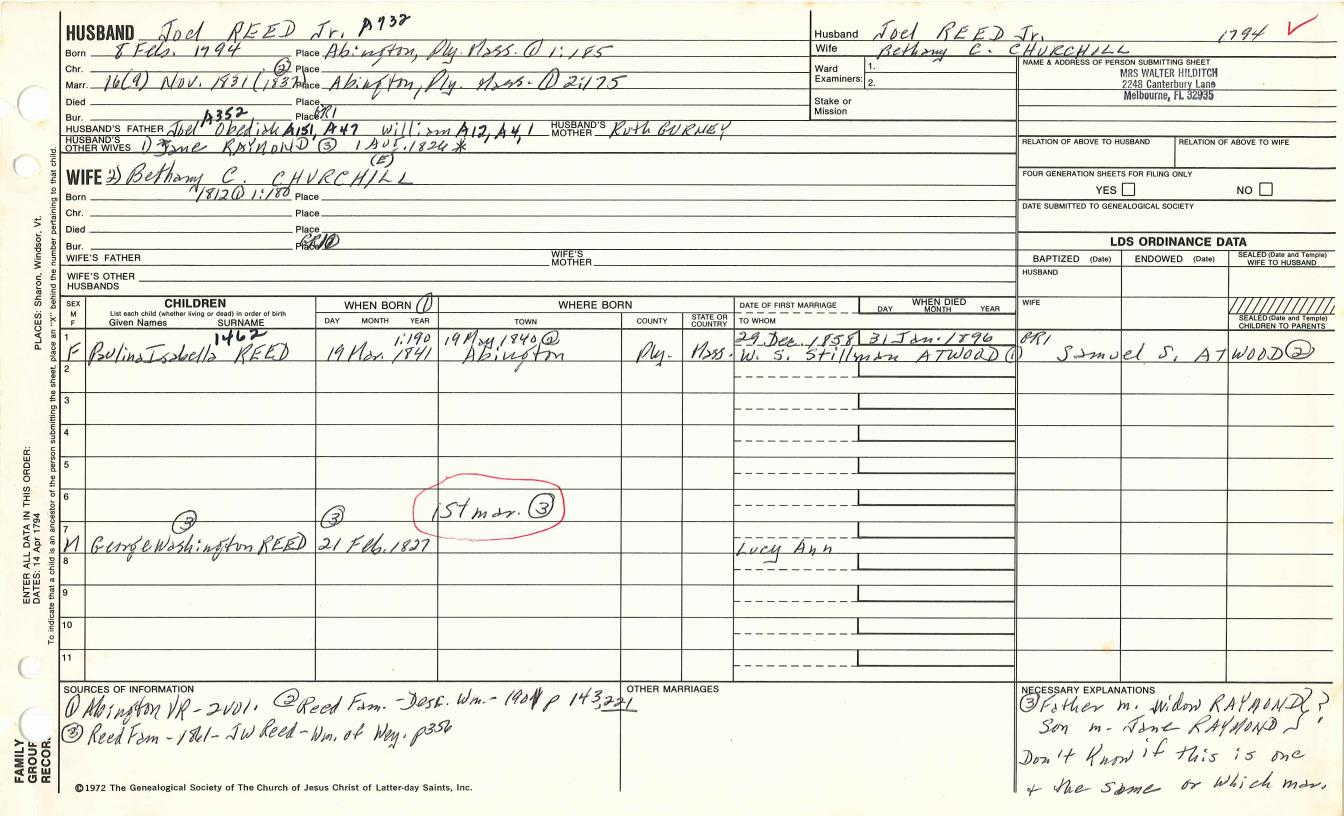 HUSBAND Joel REED Jr. A732
Born 8 Feb. 1794 Place Abington, Ply. Mass. ① 1:185
Chr. ② Place
Marr. 16(9) Nov. 1831 (1837) Place Abington, Ply. Mass. ① 2:175
Died Place
Bur. Place GR1
A352
HUSBAND'S FATHER Joel Obediah A151, A47 William A12, A4, 1 HUSBAND'S MOTHER Ruth GURNEY
HUSBAND'S OTHER WIVES 1) * Jane RAYMOND ③ 1 Aug. 1826 *
(E)
WIFE 2) Bethany C. CHURCHILL
Born 1812 ① 1:180 Place
Chr. Place
Died Place
Bur. Place
WIFE'S FATHER WIFE'S MOTHER
WIFE'S OTHER HUSBANDS
Husband Joel REED Jr. 1794 ✓
Wife Bethany C. CHURCHILL
Ward Examiners: 1.
2.
Stake or Mission
NAME & ADDRESS OF PERSON SUBMITTING SHEET
MRS WALTER HILDITCH
2248 Canterbury Lane
Melbourne, FL 32935
RELATION OF ABOVE TO HUSBAND RELATION OF ABOVE TO WIFE
FOUR GENERATION SHEETS FOR FILING ONLY
YES NO
DATE SUBMITTED TO GENEALOGICAL SOCIETY
LDS ORDINANCE DATA
BAPTIZED (Date) ENDOWED (Date) SEALED (Date and Temple) WIFE TO HUSBAND
HUSBAND
WIFE
SEALED (Date and Temple) CHILDREN TO PARENTS
SEX M F CHILDREN List each child (whether living or dead) in order of birth Given Names SURNAME
WHEN BORN ① DAY MONTH YEAR
WHERE BORN TOWN COUNTY STATE OR COUNTRY
DATE OF FIRST MARRIAGE TO WHOM
WHEN DIED DAY MONTH YEAR
1 1462 1:190 19 May 1840 ② 29 Dec. 1858 31 Jan. 1896 GR1
F Paulina Isabella REED 19 Mar. 1841 Abington Ply. Mass. W. S. Stillman ATWOOD ① Samuel S. ATWOOD ②
2
3
4
5
6 1st mar. ③
7 ③ ③
M George Washington REED 21 Feb. 1827 Lucy Ann
8
9
10
11
SOURCES OF INFORMATION
① Abington VR - 2 vol. ② Reed Fam. - Desc. Wm. - 1901 p 143, 221
③ Reed Fam - 1861 - JW Reed - Wm. of Wey. p356
OTHER MARRIAGES
NECESSARY EXPLANATIONS
③ Father m. Widow RAYMOND } ?
Son m. Jane RAYMOND
Don't Know if this is one
+ the same or which mar.
©1972 The Genealogical Society of The Church of Jesus Christ of Latter-day Saints, Inc.
FAMILY GROUP RECOR
ENTER ALL DATA IN THIS ORDER:
DATES: 14 Apr 1794
PLACES: Sharon, Windsor, Vt.
To indicate that a child is an ancestor of the person submitting the sheet, place an "X" behind the number pertaining to that child.